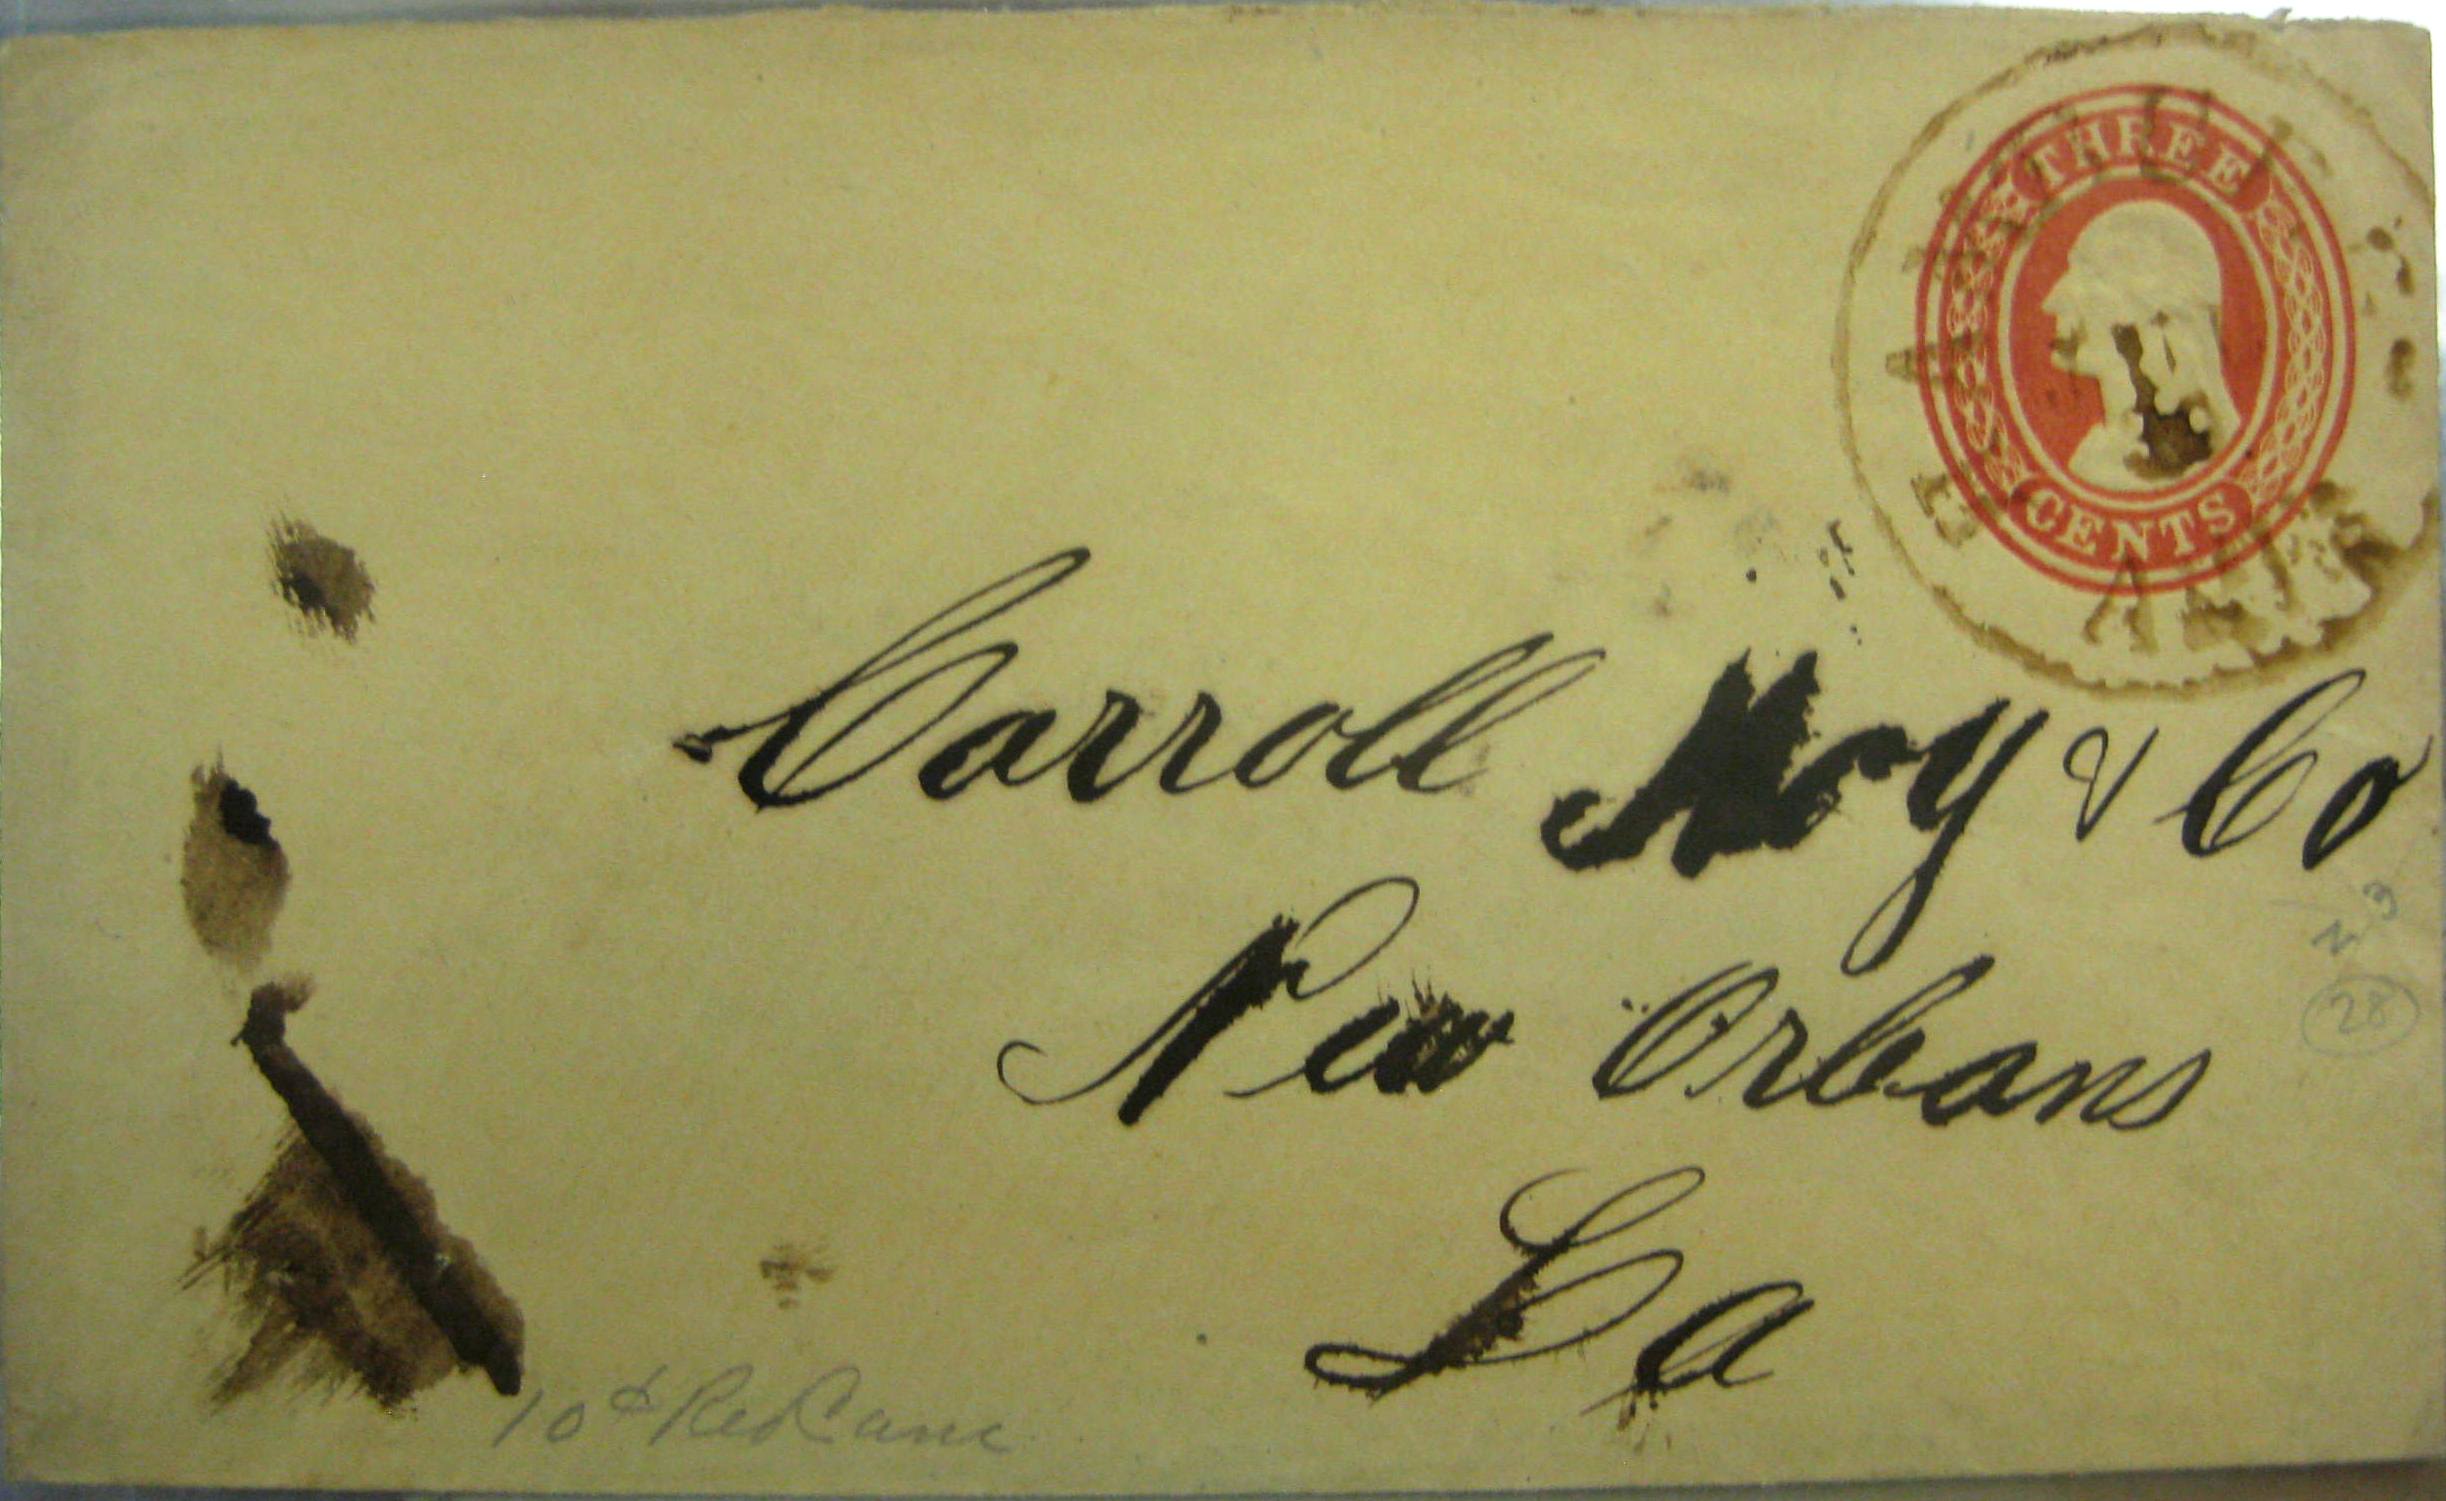 THREE
CENTS
ARK
Carroll Hoy & Co
New Orleans
La
N 3
28
10¢ Red Canc